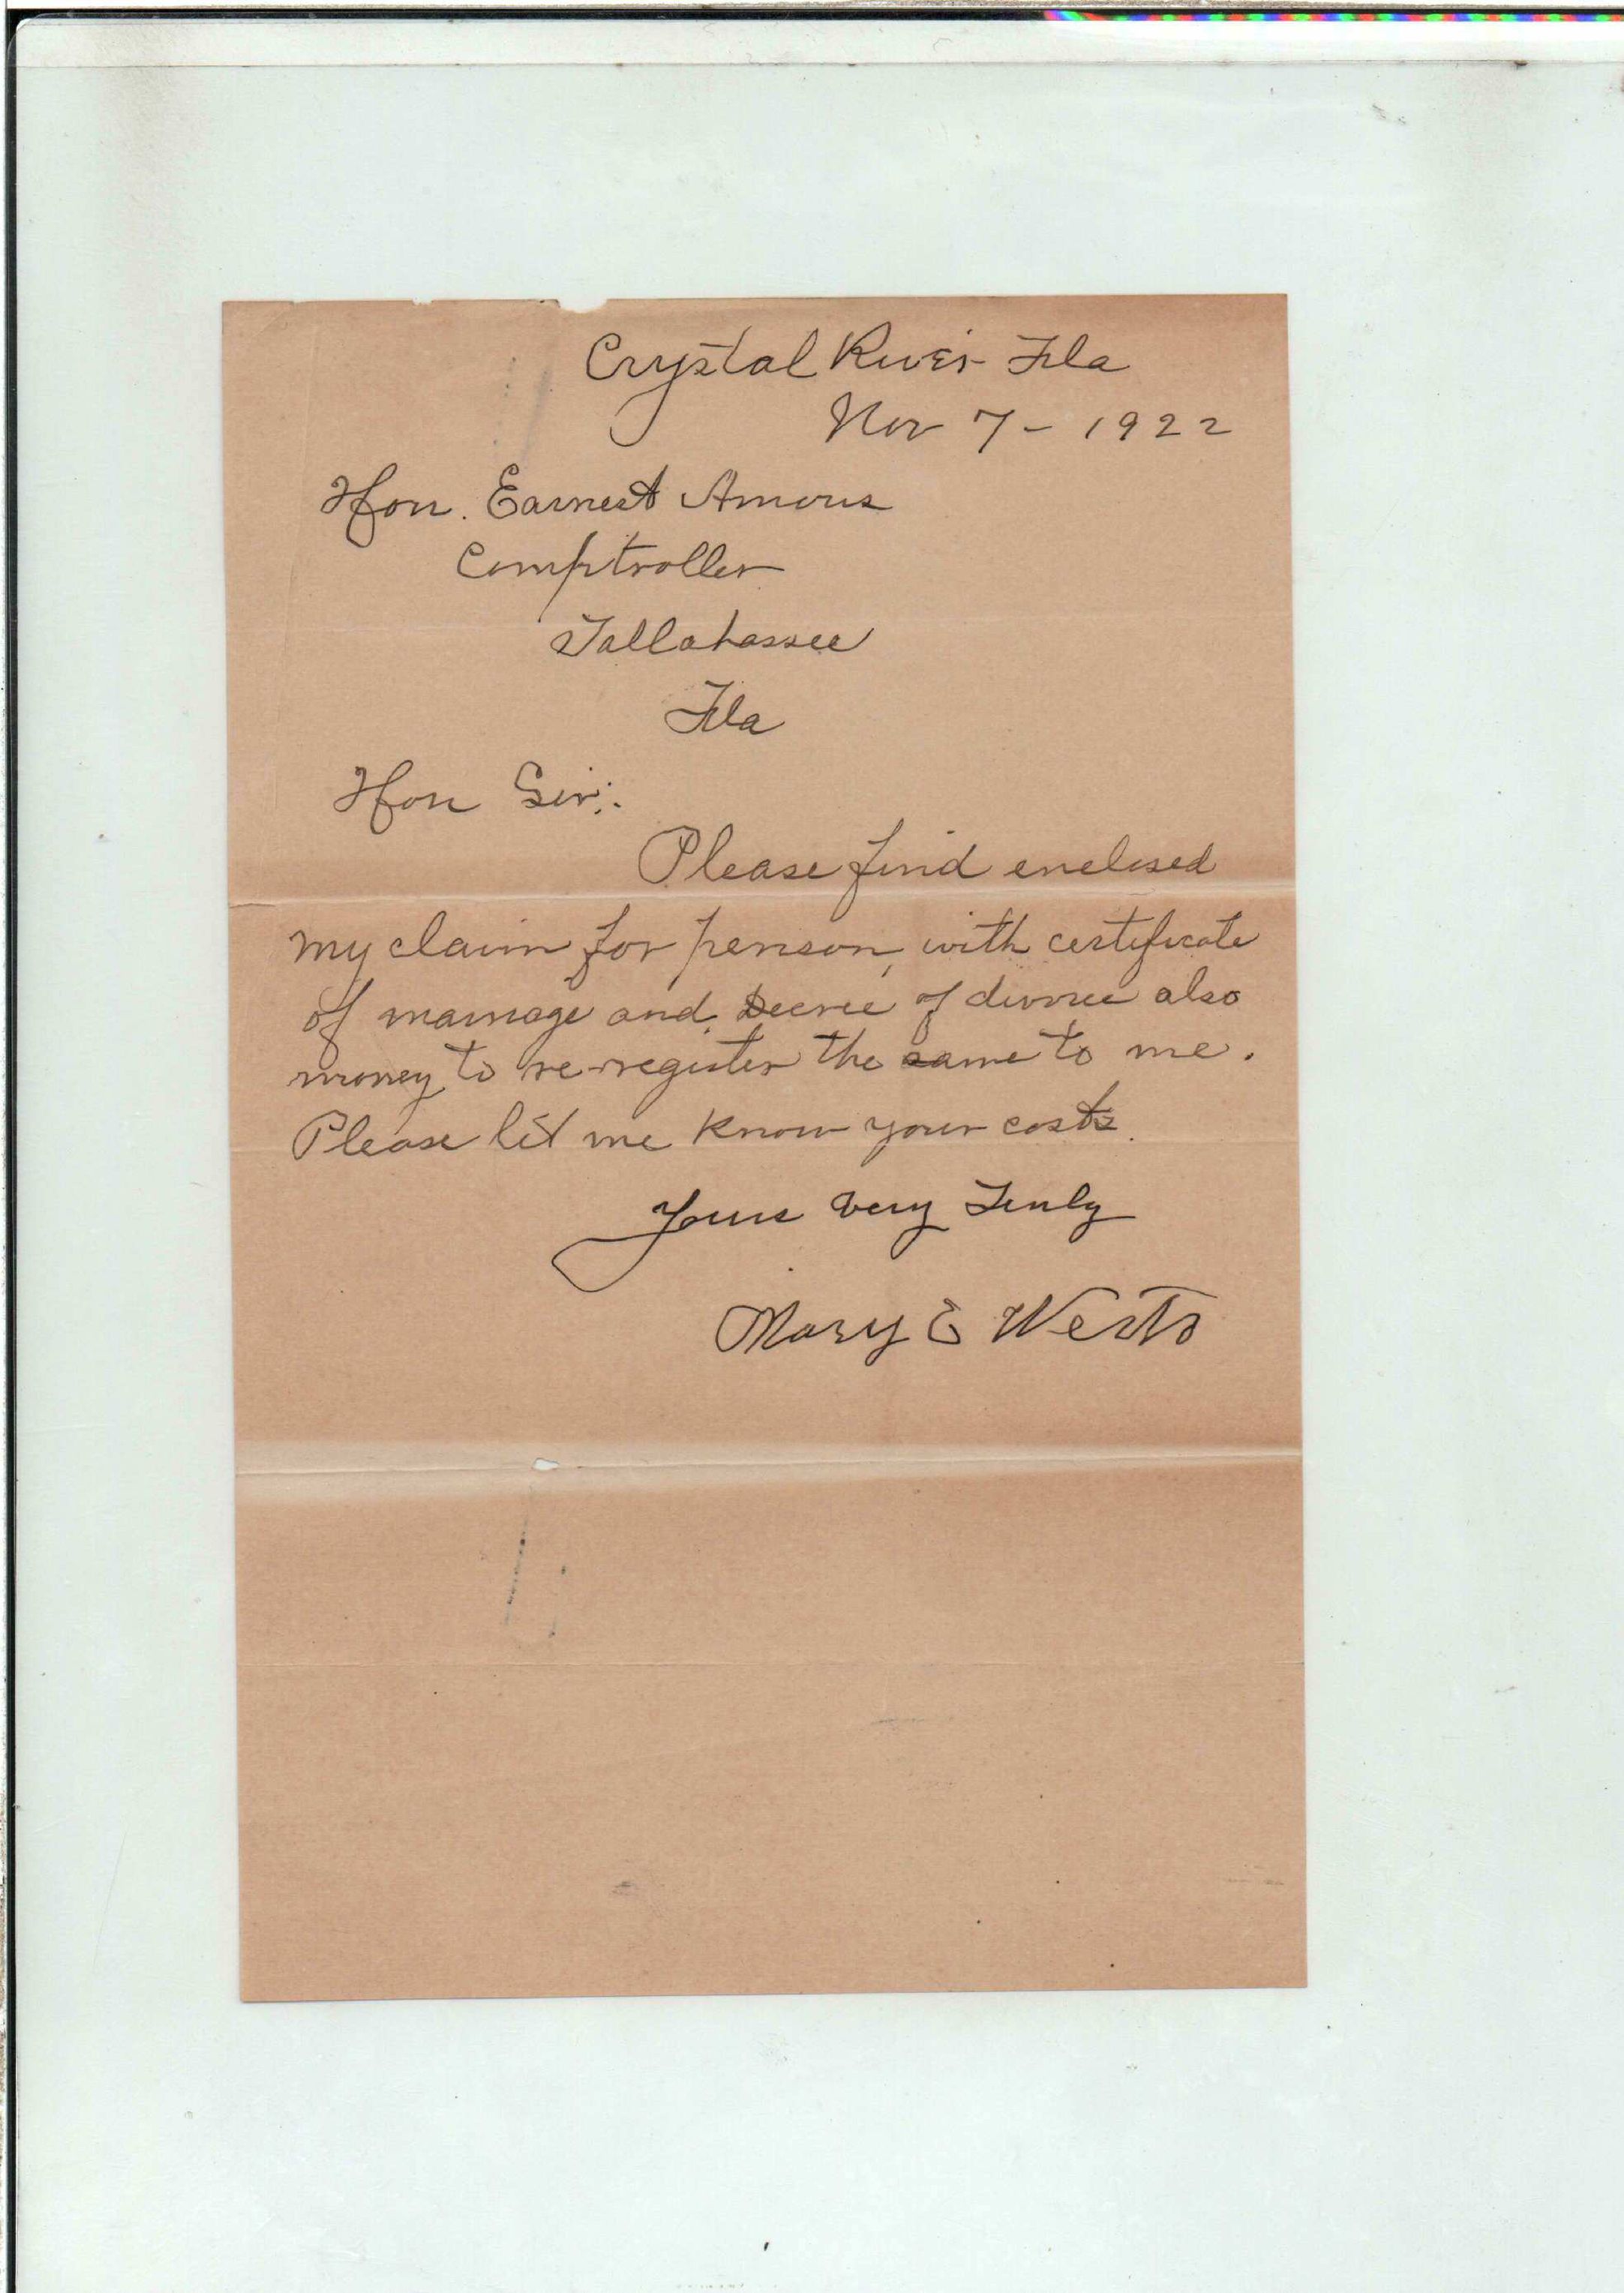 Crystal River Fla
Nov 7 - 1922
Hon. Earnest Amous
Comptroller
Tallahassee
Fla
Hon Sir:
Please find enclosed
my claim for penson, with certificate
of marriage and Decree of divorce also
money to re-register the same to me.
Please let me know your costs.
Yours Very Truly
Mary E Werts